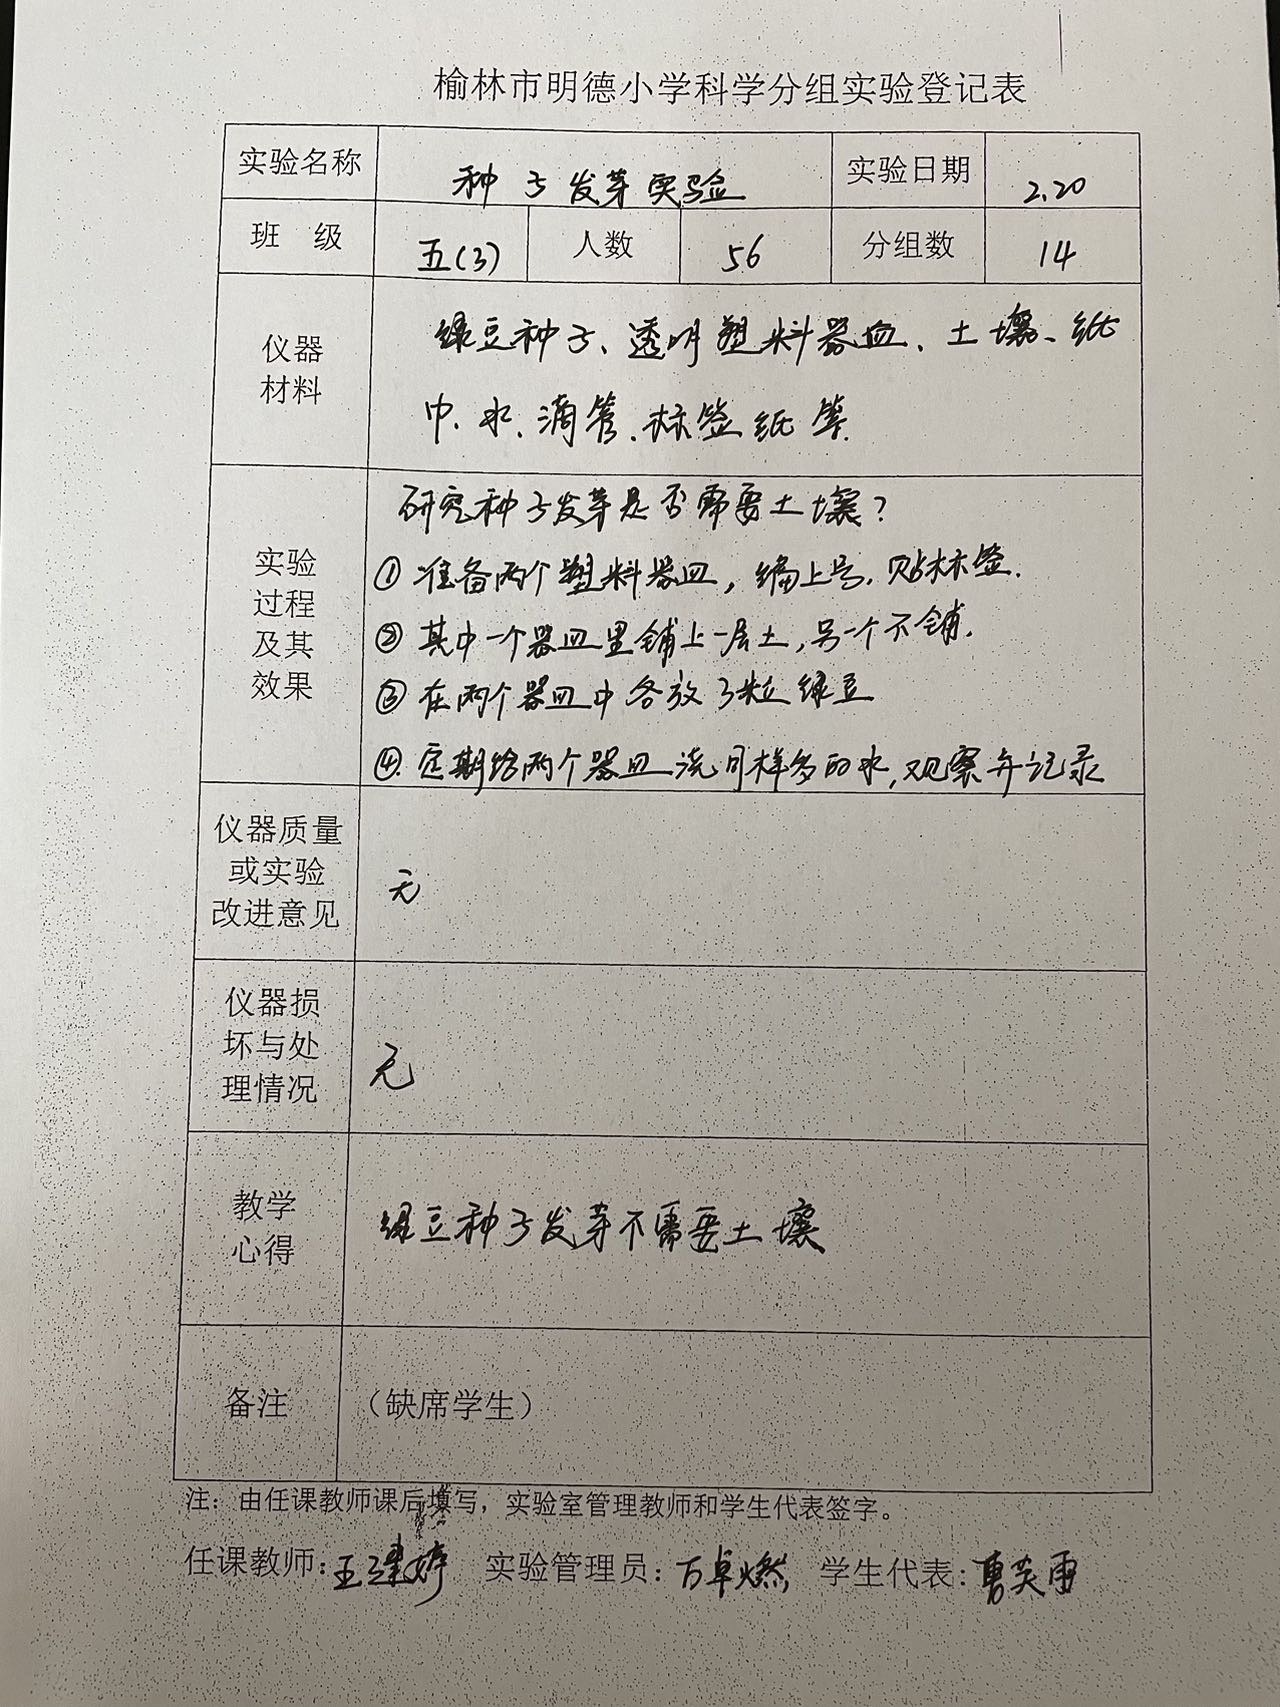 榆林市明德小学科学分组实验登记表
实验名称 种子发芽实验 实验日期 2.20
班 级 五(3) 人数 56 分组数 14
仪器材料 绿豆种子、透明塑料器皿、土壤、纸
巾、水、滴管、标签纸等.
实验过程及其效果 研究种子发芽是否需要土壤？
① 准备两个塑料器皿，编上号，贴标签.
② 其中一个器皿里铺上一层土，另一个不铺.
③ 在两个器皿中各放3粒绿豆
④. 定期给两个器皿浇同样多的水，观察并记录
仪器质量或实验改进意见 无
仪器损坏与处理情况 无
教学心得 绿豆种子发芽不需要土壤
备注 （缺席学生）
注：由任课教师课后填写，实验室管理教师和学生代表签字。
任课教师：王建婷 实验管理员：万卓燃 学生代表：曹芙雨